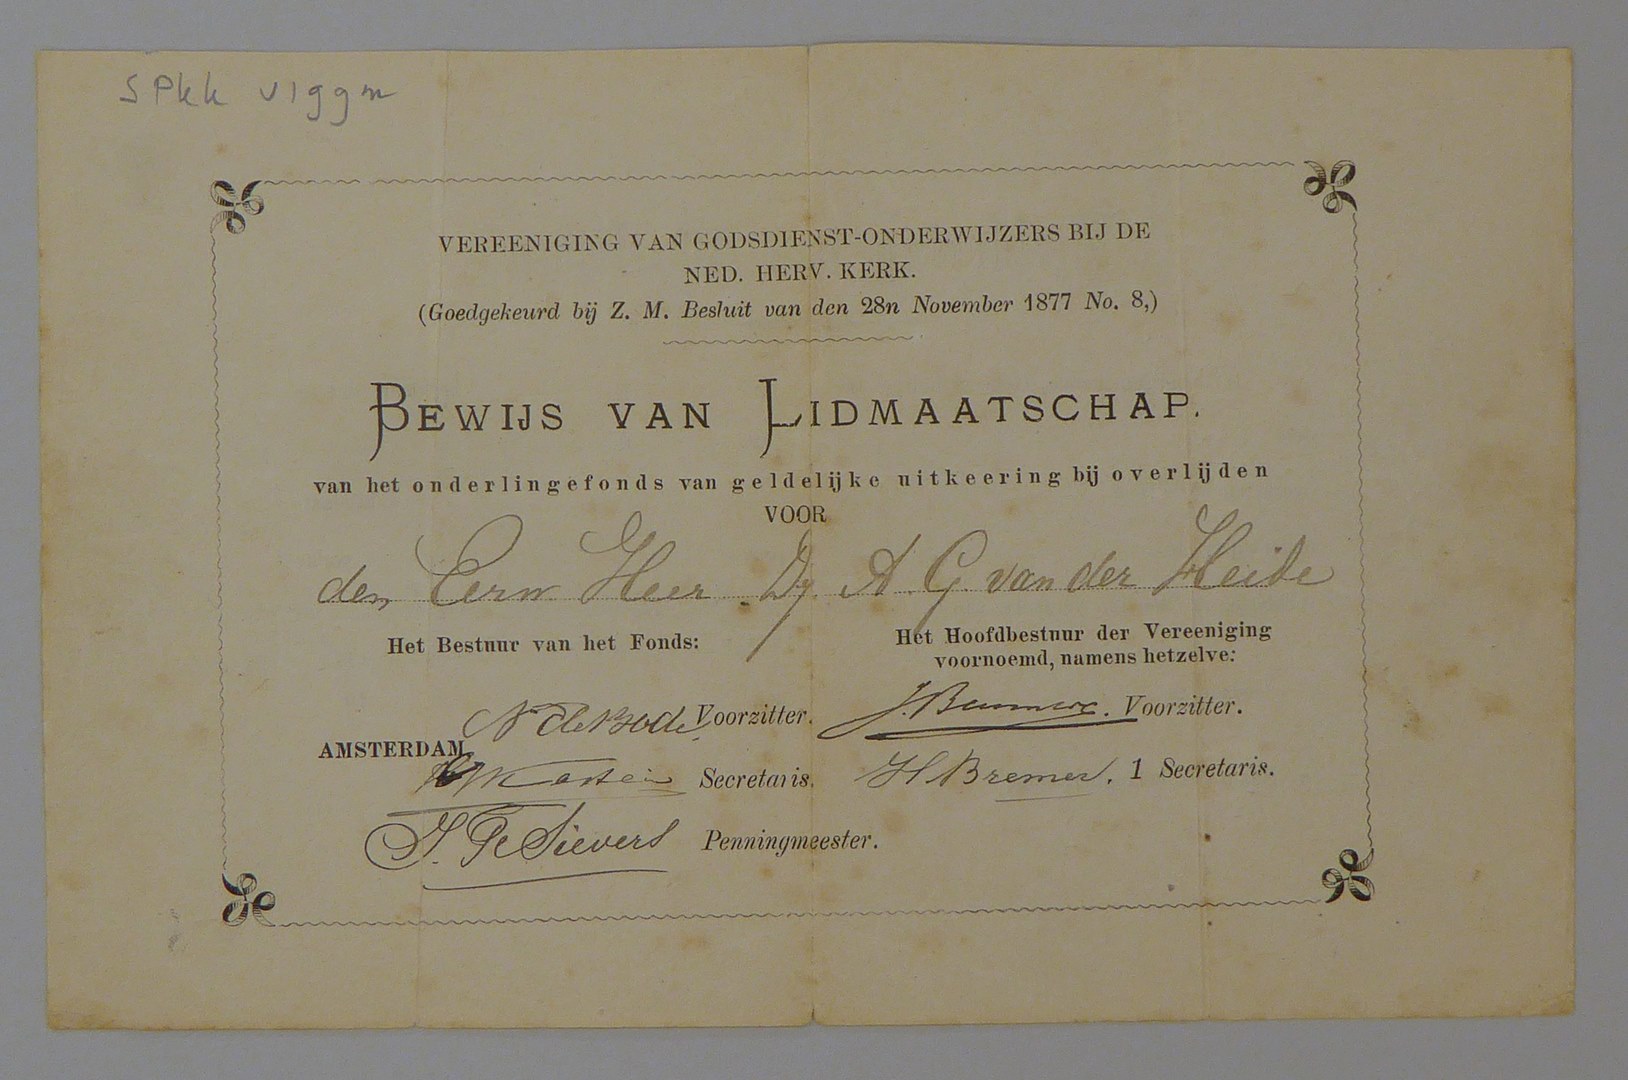 VEREENIGING VAN GODSDIENST-ONDERWIJZERS BIJ DE
NED. HERV. KERK.
(Goedgekeurd bij Z. M. Besluit van den 28n November 1877 No. 8,)
BEWIJS VAN LIDMAATSCHAP.
van het onderlingefonds van geldelijke uitkeering bij overlijden
VOOR
den Eerw Heer A G. van der Heide
Het Bestuur van het Fonds:
Het Hoofdbestuur der Vereeniging
voornoemd, namens hetzelve:
N de Bode Voorzitter.
J. Voorzitter.
AMSTERDAM,
Secretaris.
H Bremer. 1 Secretaris.
Sievers Penningmeester.